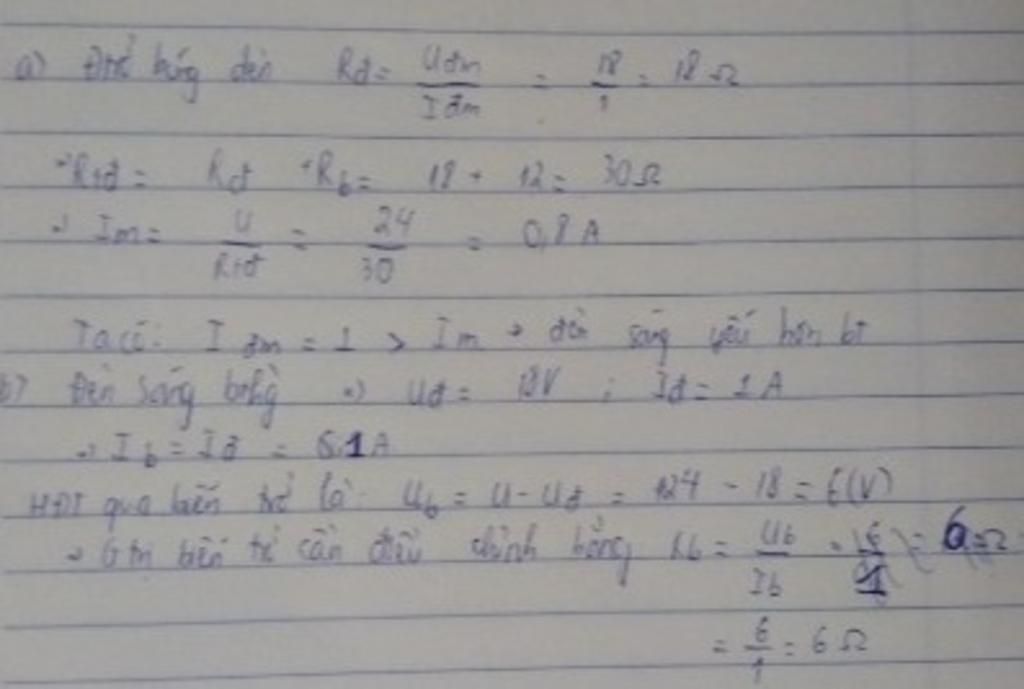 a) Đtrở bóng đèn Rđ = Uđm / Iđm = 18 / 1 = 18 Ω
→ Rtđ = Rđ + Rb = 18 + 12 = 30 Ω
→ Im = U / Rtđ = 24 / 30 = 0,8 A
Ta có: I đm = 1 > Im → đèn sáng yếu hơn bt
b) Đèn sáng → Uđ = 18V ; Iđ = 1 A
→ Ib = Iđ = 1A
HĐT qua biến trở là: Ub = U - Uđ = 24 - 18 = 6 (V)
→ Gtrị biến trở cần điều chỉnh bằng Rb = Ub / Ib = 6 / 1 = 6 Ω
= 6 / 1 = 6 Ω